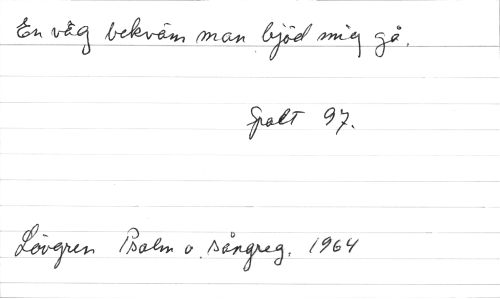 En väg bekväm man bjöd mig gå.
spalt 97.
Lövgren Psalm o. sångreg. 1964